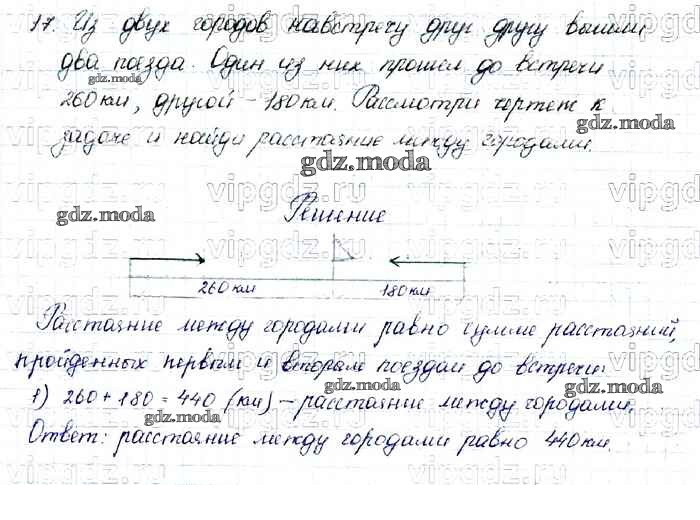 17. Из двух городов навстречу друг другу вышли
два поезда. Один из них прошел до встречи
260 км, другой - 180 км. Рассмотри чертеж к
задаче и найди расстояние между городами.
Решение
260 км 180 км
Расстояние между городами равно сумме расстояний,
пройденных первым и вторым поездам до встречи:
1) 260 + 180 = 440 (км) - расстояние между городами,
Ответ: расстояние между городами равно 440 км.
gdz.moda
gdz.moda
gdz.moda
gdz.moda
gdz.moda
gdz.moda
gdz.moda
gdz.moda
gdz.moda
vipgdz.ru